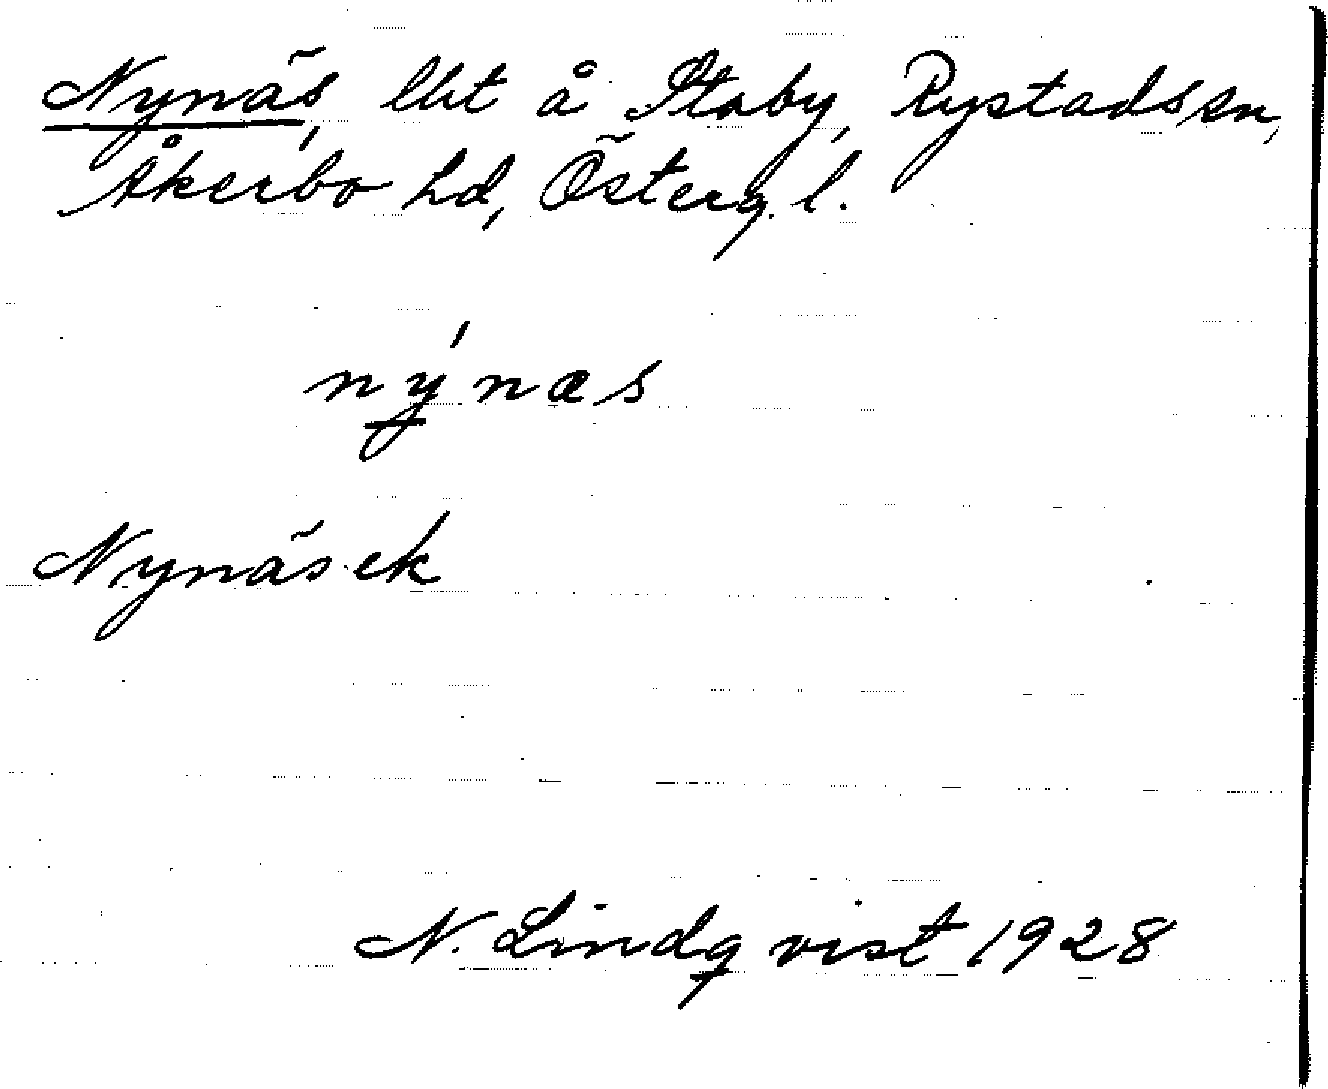 Nynäs, lht å Staby, Rystads sn,
Åkerbo hd, Österg. l.
nýnæs
Nynäs ek
N. Lindqvist 1928